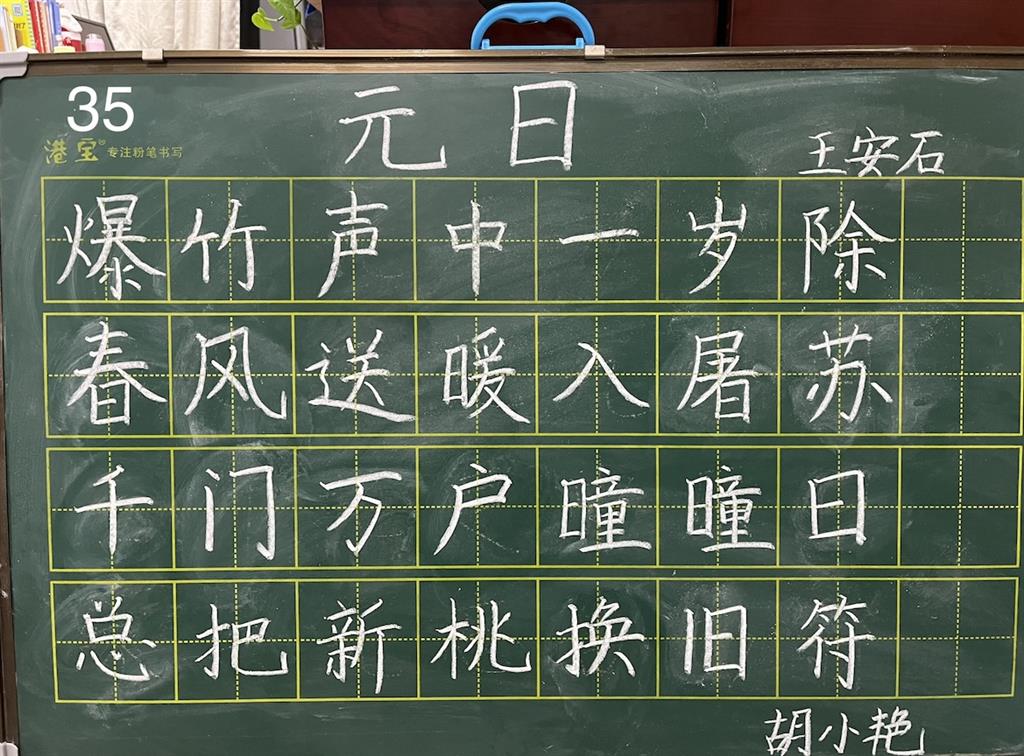 35
港宝 专注粉笔书写
元日
王安石
爆竹声中一岁除
春风送暖入屠苏
千门万户曈曈日
总把新桃换旧符
胡小艳